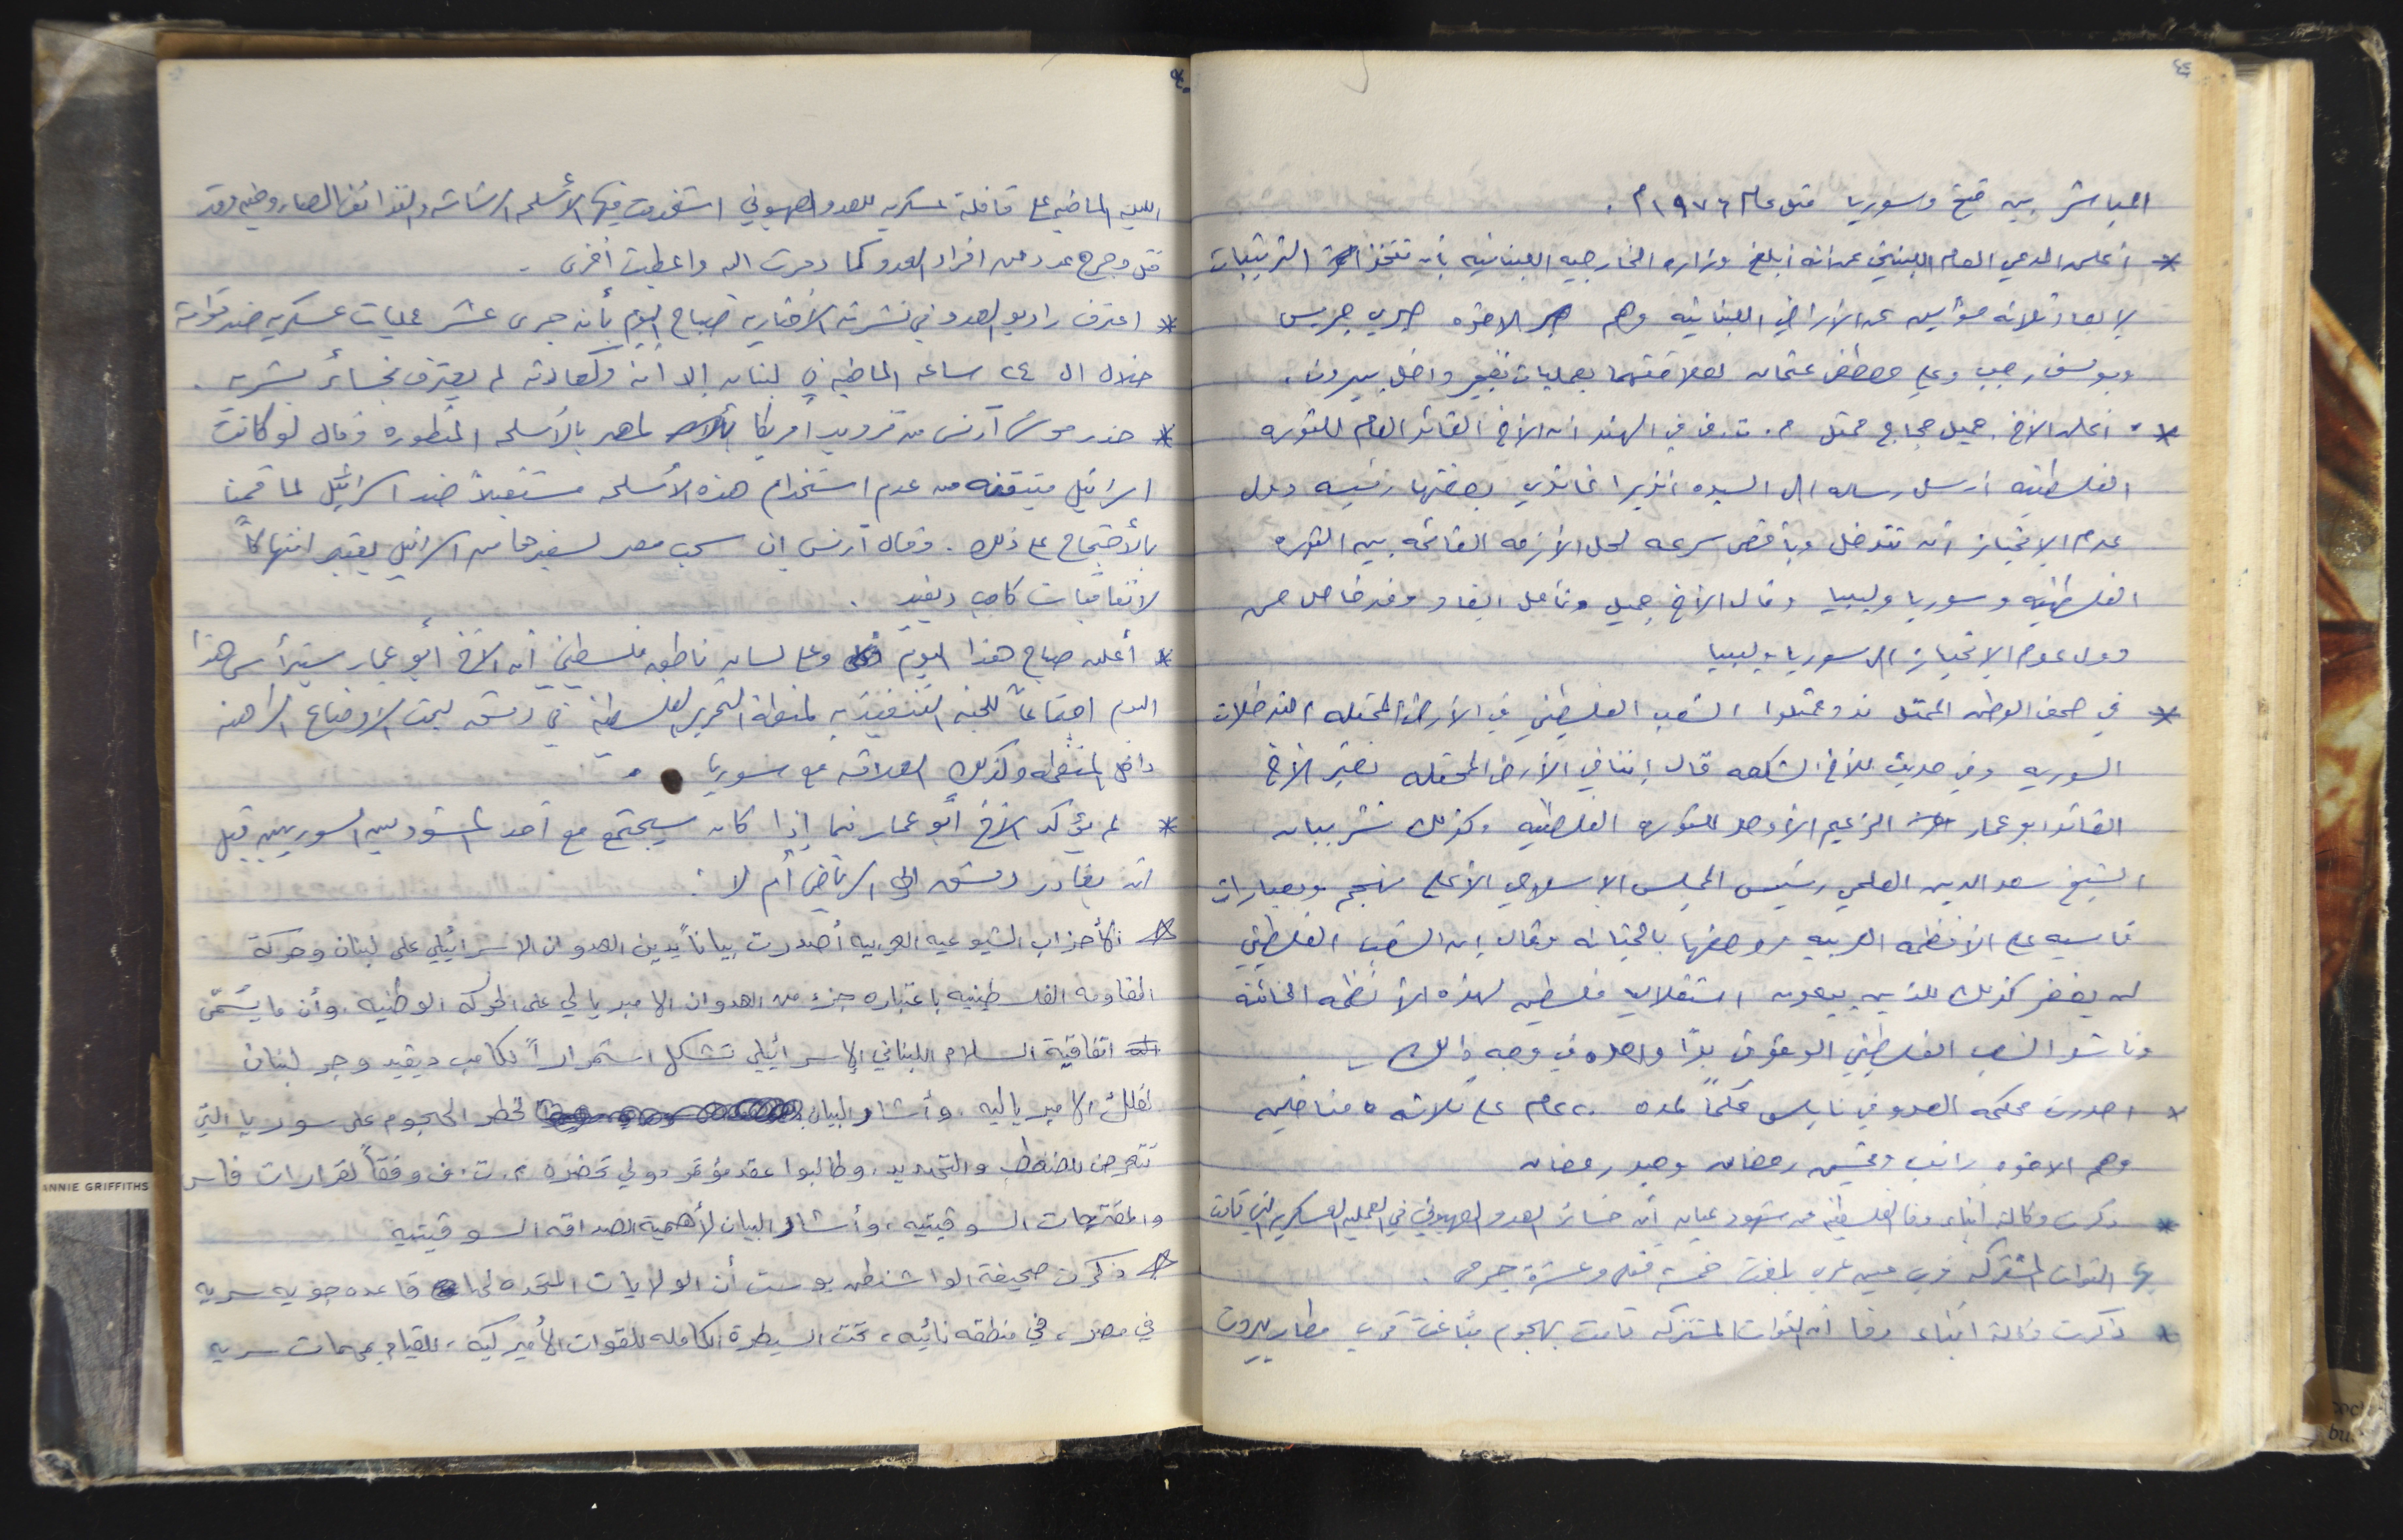 ٤٤
المباشر بين فتح وسوريا قبل عام ١٩٧٦م .
* أعلن المدعي العام اللبناني عن انه أبلغ وزاره الخارجيه اللبنانيه بأن تتخذ الترتيبات
لإبعاد ثلاثه موانين عن الأراضي اللبنانيه وهم الاخوه صبري جريس
ويوسف رجب وعلي مصطفى عثمان لعلاقتهما بعمليات تفجير داخل بيروت .
* أعلن الاخ جميل حجاج ممثل م.ت.ف في الهند ان الأخ القائد العام للثوره
الفلسطينيه أرسل رساله الى السيده انديرا غاندي بصفتها رئيسه دول
عدم الإنحياز أن تتدخل وبأقصى سرعه لحل الأزمه القائمه بين الثوره
الفلسطينيه وسوريا وليبيا وقال الأخ جميل ونأمل ايفاد وفد خاص من
دول عدم الإنحياز الى سوريا وليبيا
* في صحف الوطن المحتل ندد ممثلوا الشعب الفلسطيني في الأرض المحتله التدخلات
السوريه وفي حديث للأخ الشكعه قال إننا في الأرض المحتله نعتبر الأخ
القائد ابو عمار الزعيم الأوحد للثوره الفلسطينيه وكذلك نشر بيان
الشيخ سعد الدين العلمي رئيس المجلس الإسلامي الأعلى وبعبارات
قاسيه على الأنظمه العربيه ووصفها بالخيانه وقال إن الشعب الفلسطيني
لن يغفر كذلك للذين يبيعون استقلاليه فلسطين لهذه الأنظمه الخائنة
وناشد الشعب الفلسطيني الوقوف يداً واحده في وجه ذلك .
* اصدرت محكمه العدو في نابلس حكماً لمده ٢٠ عام على ثلاثه مناضلين
وهم الاخوه راتب وتحسين رمضان وعبد رمضان
* ذكرت وكالة أنباء وفا الفلسطينيه عن شهود عيان أن خسائر العدو الصهيوني في العمليه العسكريه التي قامت
بها القوات المشتركه قرب عين عرب بلغت خمسه قتلى وعشرة جرحى .
* ذكرت وكالة أنباء وفا أن القوات المشتركه قامت بهجوم مباغت قرب مطار بيروت
٤٥
الليله الماضيه على قافلة عسكريه للعدو الصهيوني استخدمت فيها الأسلحه الرشاشه والقذائف الصاروخيه وقد
قتل وجرح عدد من افراد العدو كما دمرت اليه واعطبت أخرى .
* اعترف راديو العدو في نشرته الأخباريه صباح اليوم بأنه جرى عشر عمليات عسكريه ضد قواته
خلال ال ٢٤ ساعه الماضيه في لبنان إلا أنه وكعادته لم يعترف بخسائر بشريه .
* حذر موشي آرنس من تزويد أمريكا لمصر بالأسلحه المتطوره وقال لو كانت
اسرائيل متيقنه من عدم استخدام هذه الأسلحه مستقبلاً ضد اسرائيل لما قمنا
بالأحتجاج على ذلك . وقال آرنس ان سحب مصر لسفيرها من اسرائيل يعتبر انتهاكاً
لاتفاقيات كامب ديفيد .
* أعلن صباح هذا اليوم وعلى لسان ناطق فلسطيني أن الأخ أبو عمار سيترأس هذا
اليوم اجتماعاً للجنه التنفيذيه لمنظمة التحرير الفلسطينيه في دمشق لبحث الأوضاع الراهنه
داخل المنظمه وكذلك العلاقه مع سوريا .
* لم يؤكد الأخ أبو عمار فيما إذا كان سيجتمع مع أحد المسؤولين السوريين قبل
أن يغادر دمشق الى الرياض أم لا .
* الأحزاب الشيوعيه العربيه أصدرت بياناً يدين العدوان الاسرائيلي على لبنان وحركة
المقاومه الفلسطينيه باعتباره جزء من العدوان الامبريالي على الحركه الوطنيه . وأن ما يسمّى
اتفاقية السلام اللبناني الإسرائيلي تشكل استمراراً لكامب ديفيد وجر لبنان
لفلك الامبرياليه . وأشار البيان لخطر الهجوم على سوريا التي
تتعرض للضغط والتهديد . وطالبوا عقد مؤتمر دولي تحضره م.ت.ف وفقاً لقرارات فاس
والمقترحات السوفيتيه ، وأشار البيان لأهمية الصداقه السوفيتيه
* ذكرت صحيفة الواشنطن بوست أن الولايات المتحده لها قاعده جويه سريه
في مصر ، في منطقه نائيه ، تحت السيطرة الكامله للقوات الأميركيه ، للقيام بمهمات سريه
ANNIE GRIFFITHS